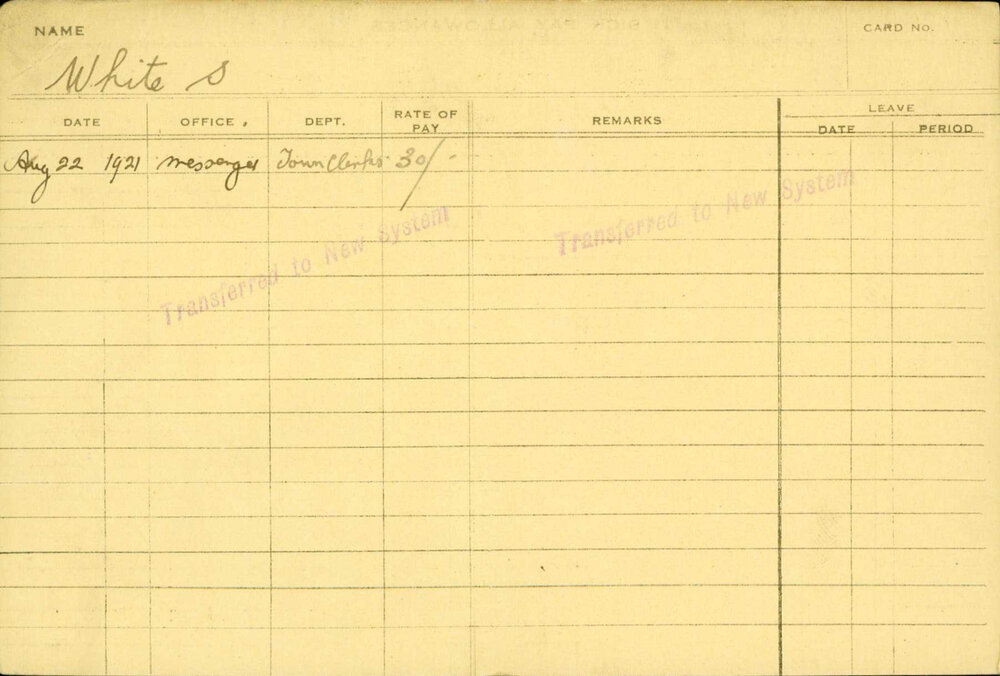 NAME
CARD No.
White S
DATE OFFICE. DEPT. RATE OF PAY REMARKS LEAVE
DATE PERIOD
Aug 22 1921 messenger Town Clerks 30/-
Transferred to New System
Transferred to New System